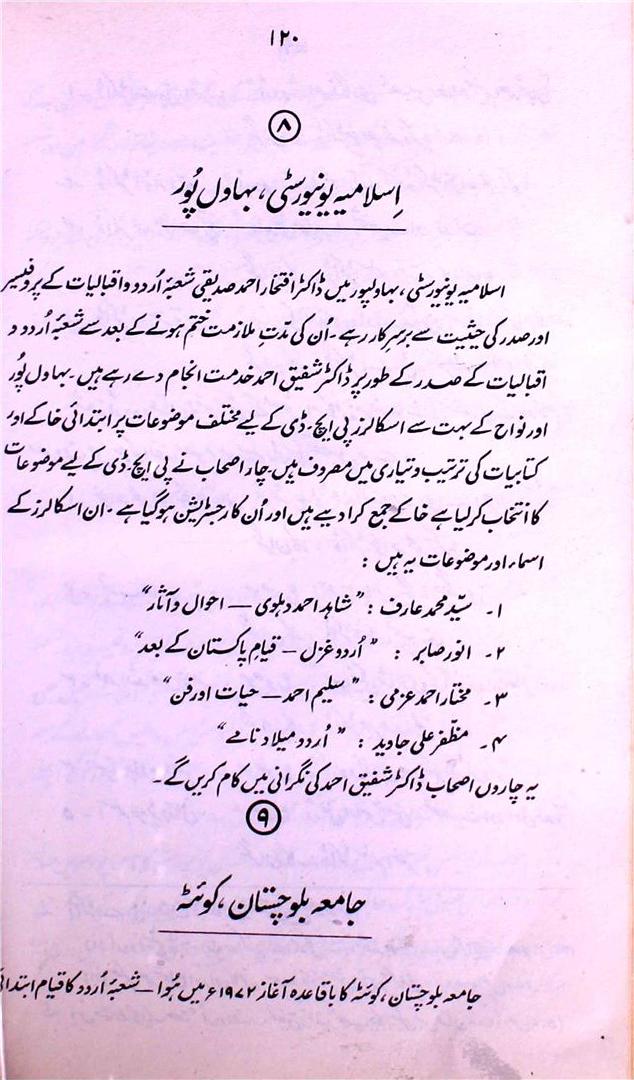 ۱۲۰
۸
اِسلامیہ یونیورسٹی، بہاول پُور
اسلامیہ یونیورسٹی، بہاولپور میں ڈاکٹر افتخار احمد صدیقی شعبۂ اُردو و اقبالیات کے پروفیسر
اور صدر کی حیثیت سے برسرِ کار رہے۔ اُن کی مدّتِ ملازمت ختم ہونے کے بعد سے شعبۂ اُردو و
اقبالیات کے صدر کے طور پر ڈاکٹر شفیق احمد خدمت انجام دے رہے ہیں۔ بہاول پُور
اور نواح کے بہت سے اسکالرز پی ایچ۔ ڈی کے لیے مختلف موضوعات پر ابتدائی خاکے اور
کتابیات کی ترتیب و تیاری میں مصروف ہیں۔ چار اصحاب نے پی ایچ۔ ڈی کے لیے موضوعات
کا انتخاب کر لیا ہے خاکے جمع کرا دیے ہیں اور اُن کا رجسٹریشن ہو گیا ہے۔ ان اسکالرز کے
اسماء اور موضوعات یہ ہیں :
۱۔ سیّد محمد عارف : "شاہد احمد دہلوی — احوال و آثار"
۲۔ انور صابر : "اُردو غزل — قیامِ پاکستان کے بعد"
۳۔ مختار احمد عزمی : "سلیم احمد — حیات اور فن"
۴۔ مظفر علی جاوید : "اُردو میلاد نامے"
یہ چاروں اصحاب ڈاکٹر شفیق احمد کی نگرانی میں کام کریں گے۔
۹
جامعہ بلوچستان، کوئٹہ
جامعہ بلوچستان، کوئٹہ کا باقاعدہ آغاز ۱۹۷۲ء میں ہُوا — شعبۂ اُردو کا قیام ابتدائی